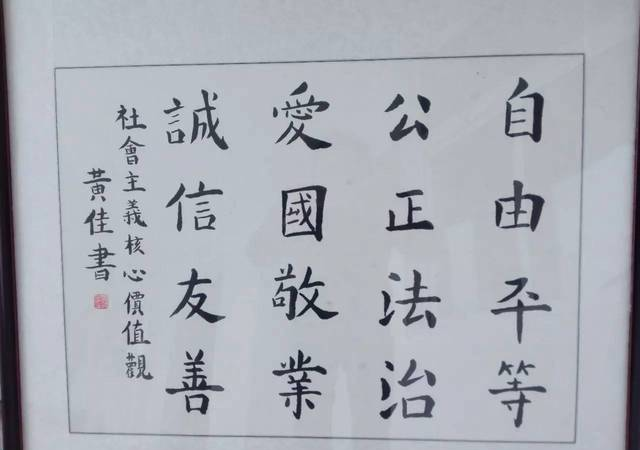 自由平等
公正法治
愛國敬業
誠信友善
社會主義核心價值觀
黃佳書